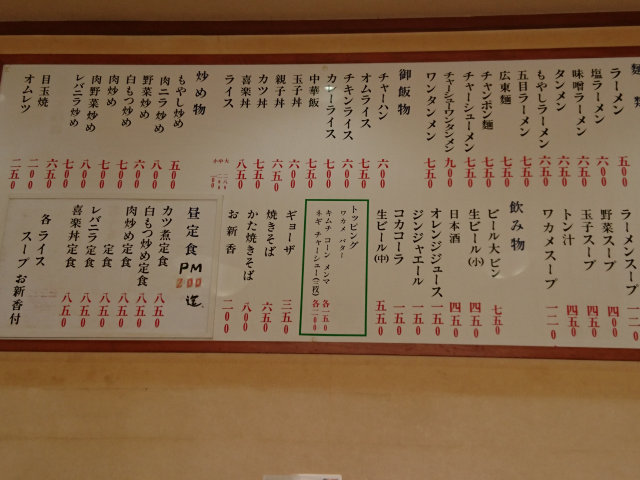 麺類
ラーメン 五〇〇
塩ラーメン 六〇〇
味噌ラーメン 六五〇
タンメン 六五〇
もやしラーメン 六五〇
五目ラーメン 七五〇
広東麺 七五〇
チャンポン麺 七五〇
チャーシューメン 七五〇
チャーシューワンタンメン 九〇〇
ワンタンメン 七五〇
御飯物
チャーハン 六〇〇
オムライス 七五〇
チキンライス 六〇〇
カレーライス 六〇〇
中華飯 七五〇
玉子丼 六〇〇
親子丼 六五〇
カツ丼 七五〇
喜楽丼 八五〇
ライス
炒め物
もやし炒め 五〇〇
肉ニラ炒め 八〇〇
野菜炒め 六〇〇
白もつ炒め 六〇〇
肉炒め 七〇〇
肉野菜炒め 八〇〇
レバニラ炒め 七〇〇
目玉焼 二〇〇
オムレツ 二五〇
ラーメンスープ 一二〇
野菜スープ 四〇〇
玉子スープ 四五〇
トン汁 四五〇
ワカメスープ 一二〇
飲み物
ビール大ビン 七五〇
生ビール(小) 四五〇
日本酒 四五〇
オレンジジュース 一五〇
ジンジャエール 一五〇
コカコーラ 一五〇
生ビール(中) 五五〇
トッピング
ワカメ バター
キムチ コーン メンマ 各一五〇
ネギ チャーシュー(三枚) 各二〇〇
ギョーザ 三五〇
焼きそば 六五〇
かた焼きそば 八〇〇
お新香 二〇〇
昼定食 PM 200迄
カツ煮定食 八五〇
白もつ炒め定食 八五〇
肉炒め定食 八五〇
定食 八五〇
レバニラ定食 八五〇
喜楽丼定食 八五〇
各 ライス
スープ お新香付